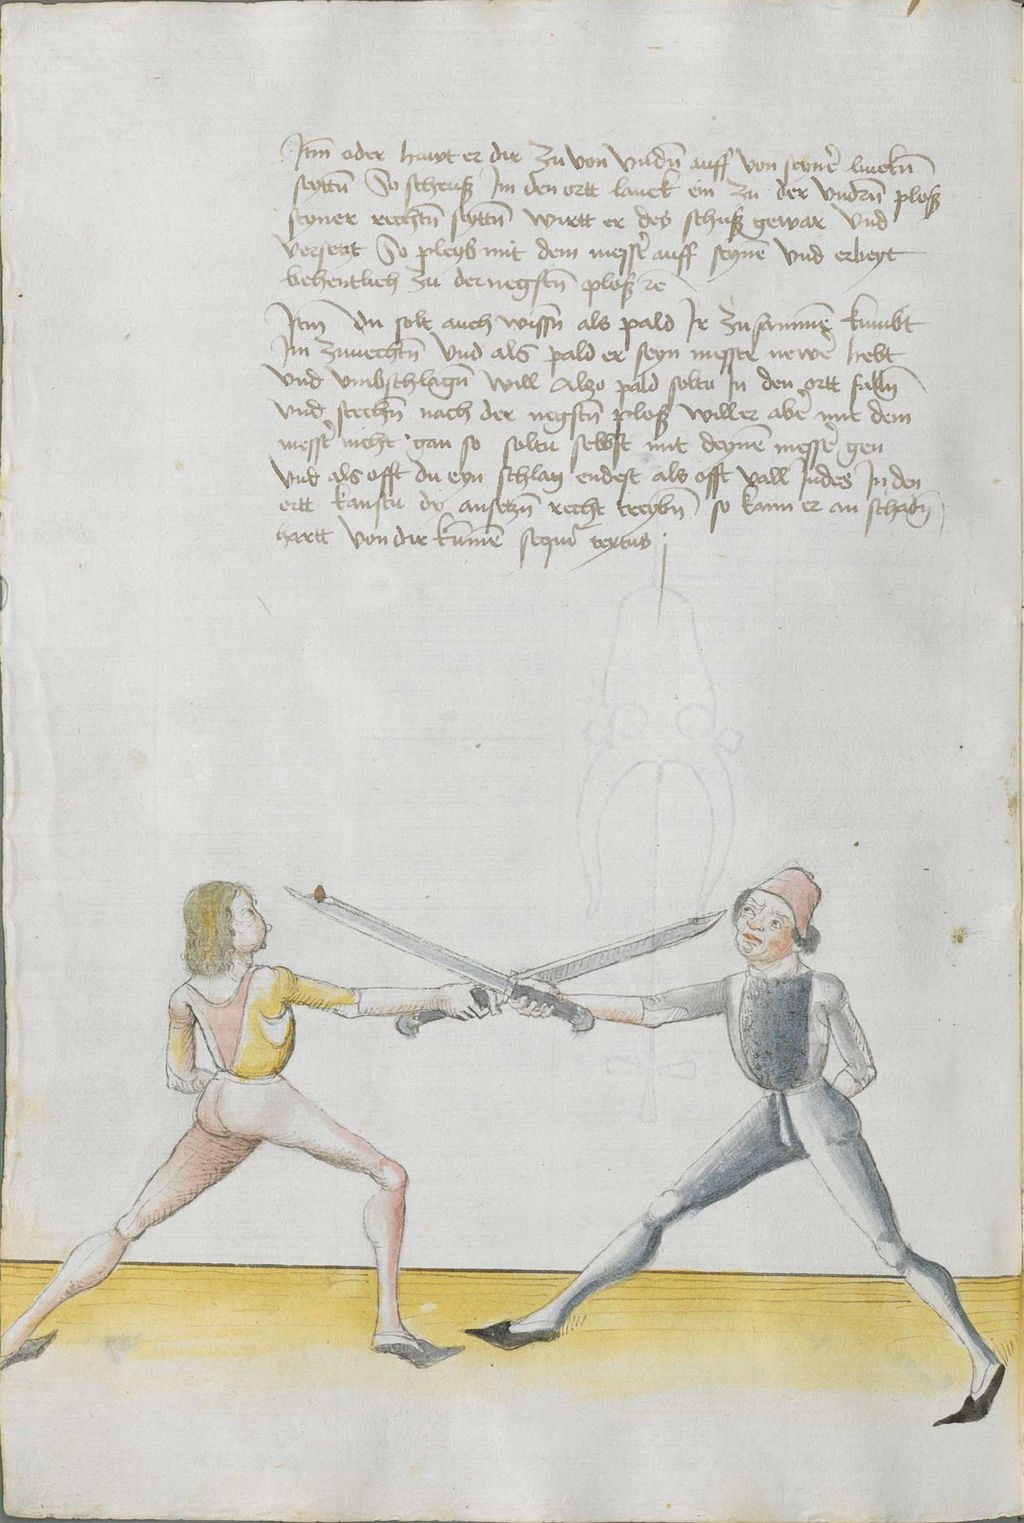 Itm oder hawt er dir zu von vndñ auff von seynˀ linckñ
seyttñ So scheuß Im den ortt lanck ein zu der vndrñ ploß
seyner rechtñ seyttñ wirtt er des schuß gewar vnd
versetzt So pleyb mit dem messˀ auff seynē vnd erbeyt
behentlich zu der negstñ ploß rc
Itm du solt auch wissñ als pald Ir zusammē kumbt
Im zuuechtñ vnd als pald er seyn messer newˀ hebt
vnd vmbschlagñ will Alzo pald soltu In den ortt fallñ
vnd stechñ nach der negstñ ploß will er abˀ mit dem
messˀ nicht gan so soltu selbst mit deynē messˀ gen
vnd als offt du eyn schlag endest als offt vall Indes In den
ortt kanstu dy ansetzñ recht treybñ so kann er an schadñ
hartt von dir kūmē sequiˀ textus